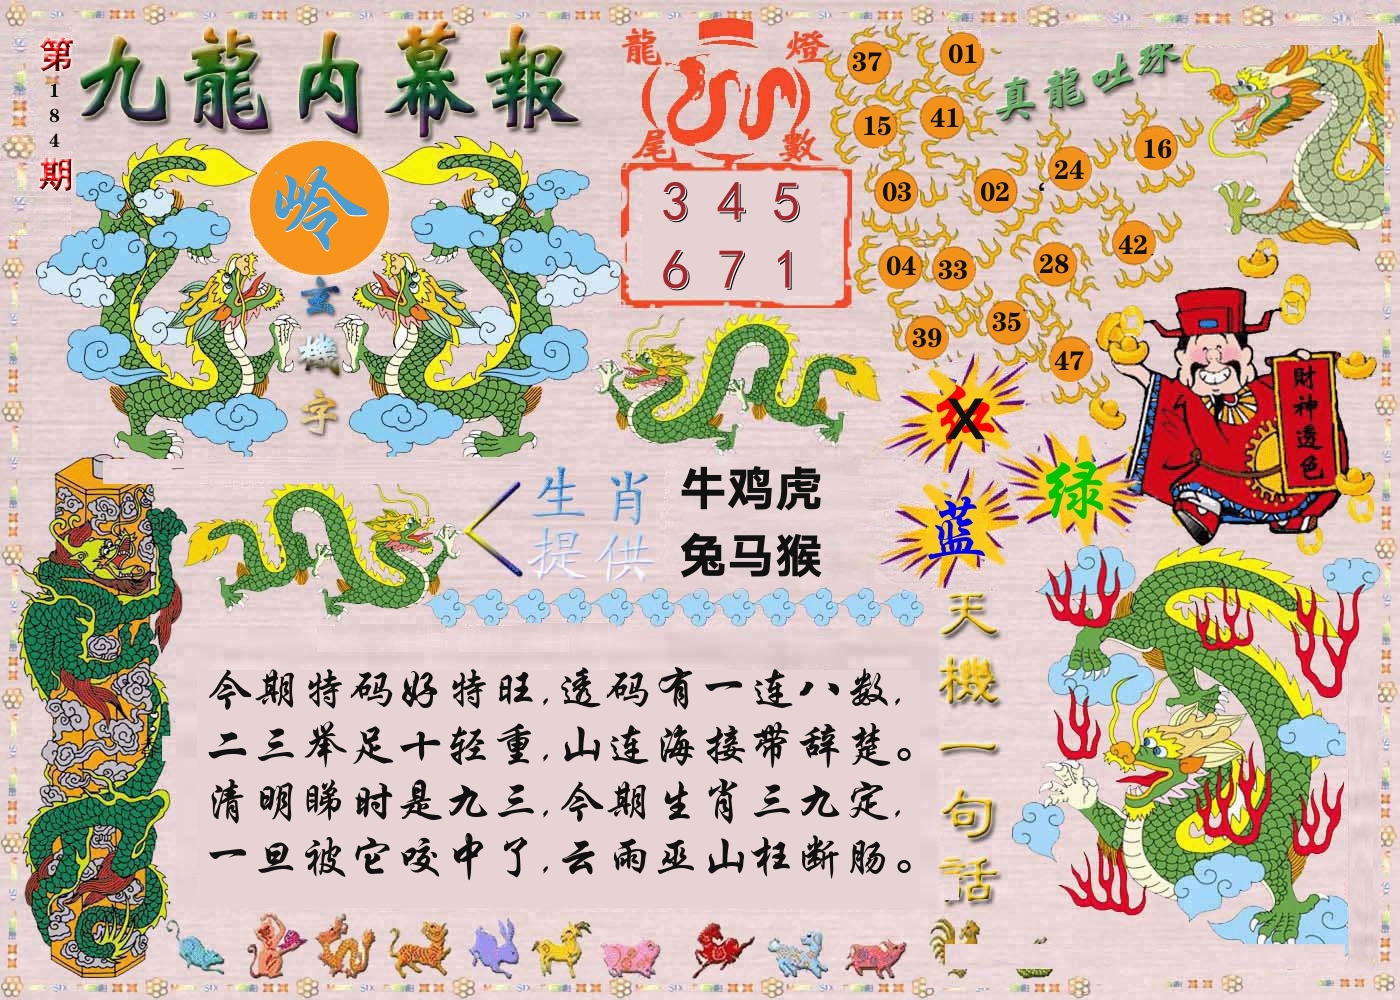 第184期
九龍内幕報
岭
玄機字
龍燈
尾數
3 4 5
6 7 1
真龍吐珠
37 01
15 41
16
24
03 02
42
04 33 28
35
39
47
財神透色
红
X
绿
蓝
生肖
提供
牛鸡虎
兔马猴
天機一句話
今期特码好特旺,透码有一连八数,
二三举足十轻重,山连海接带辞楚。
清明睇时是九三,今期生肖三九定,
一旦被它咬中了,云雨巫山枉断肠。